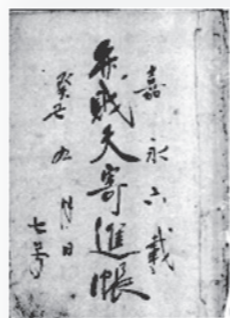 嘉永六載
寄進帳
癸丑九月日
七号